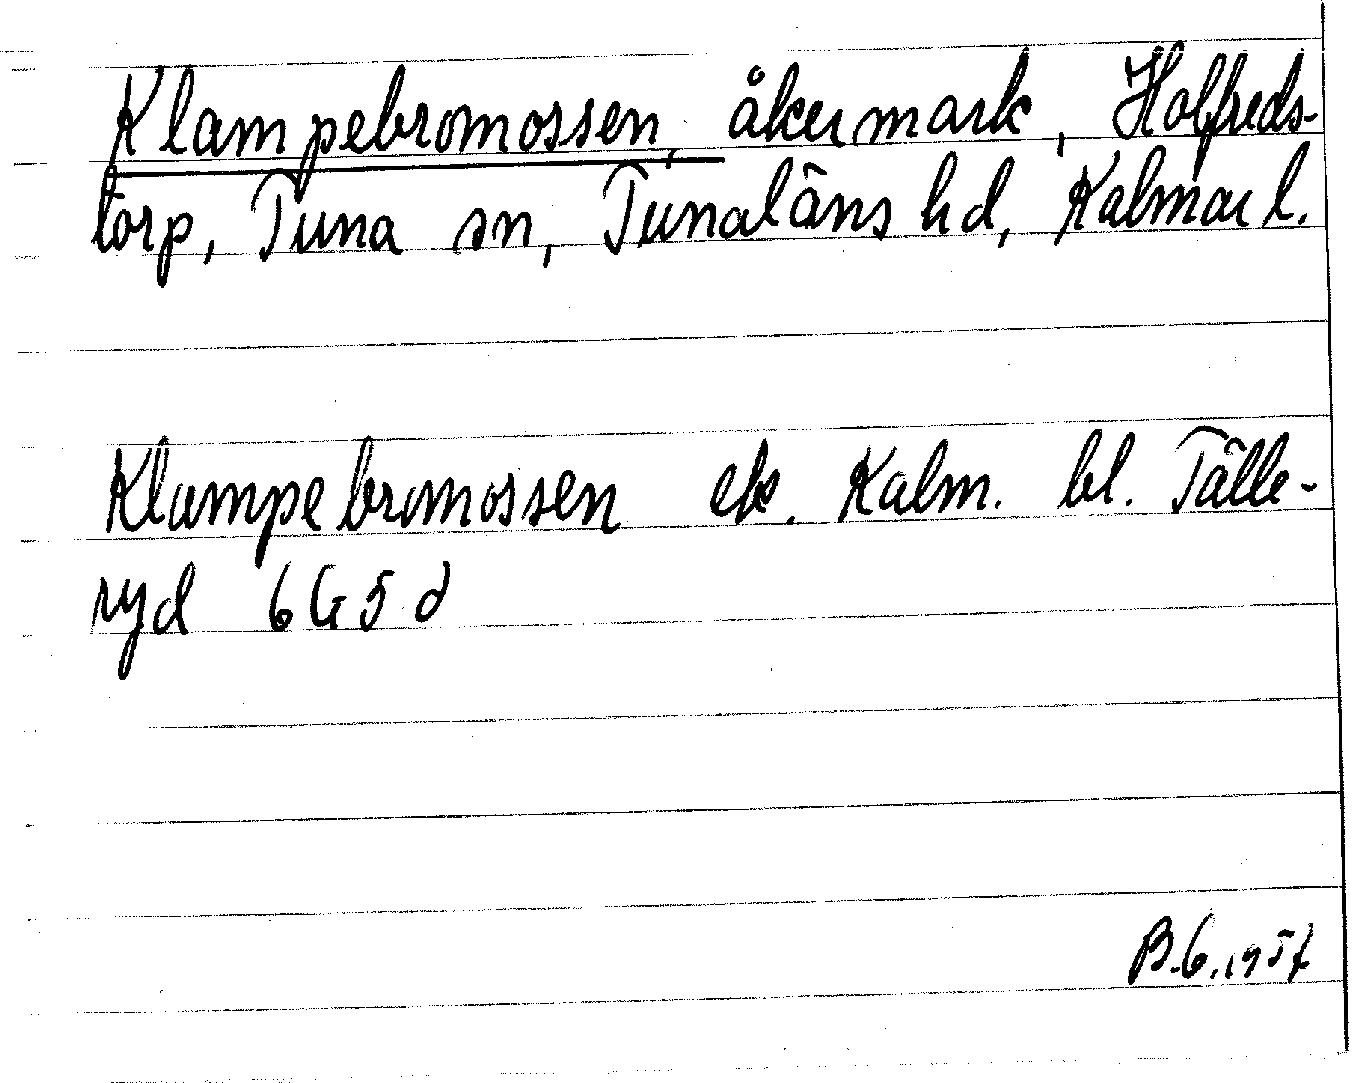 Klampebromossen, åkermark, Holfreds-
torp, Tuna sn, Tunaläns hd, Kalmar l.
Klampebromossen ek. Kalm. bl. Tälle-
ryd 6G5d
B.G. 1957